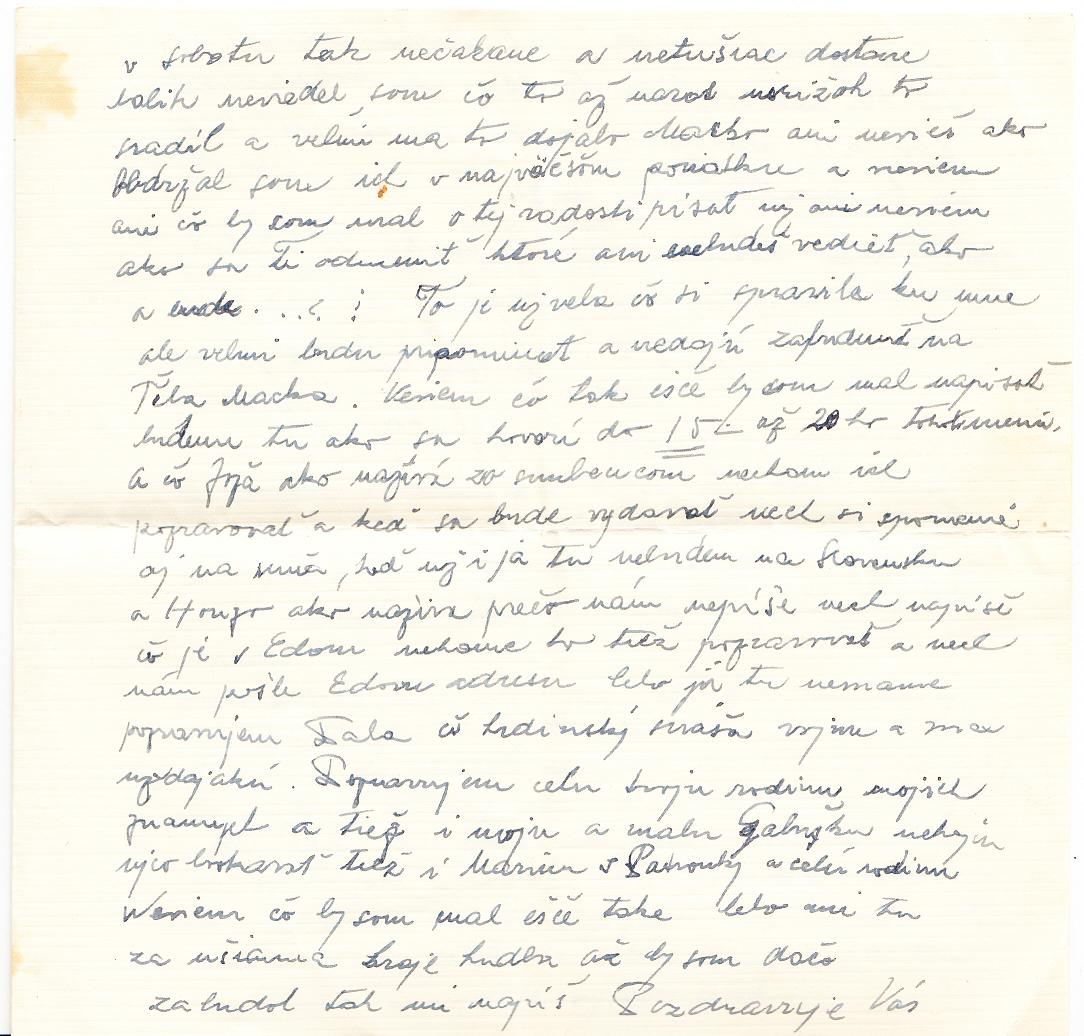 v sobotu tak nečakane a netušiac dostane
balik nevedel som čo to až narat uskižoh to
sradil a velmi ma to dojalo Macko ani nevieš ako
Obdržal som ich v najväčšom poriatku a neviem
ani čo by som mal o tej radosti pisat uj ani neviem
ako sa Ti odmeniť, ktoré ani nebudeš vedieť, ako
a ende . . . To je uj vela čo si spravila ku mne
ale velmi budu pripominat a nedajú zabudnuť na
Těba Macka. Neviem čo tak ešče by som mal napisat
budem tu ako sa hovorí do 15 až 20 ho tohot
a čo Joža ako nažívá zo snubencom nechám ich
pozravovať a keď sa bude vydavat nech si spomene
aj na mně, hod už i já tu nebudem na Slovensku
a Hongo ako naživa prečo nám nepíše nech napisě
čo je s Edom nechame ho tiež pozravovat a nech
nám pošle Edovu adresu lebo já tu nemame
pozravujem Pala čo hrdinský snáša vojnu a ma
už dajakú. Pozravujem celu tvoju rodinu mojich
znamych a tiež i moju a malu Gabušku nech ju
ujco tiež i Mariu s Patronky a celú rodinu
Neviem čo by som mal ešče take lebo mi tu
za ušiama hraje hudba až by som dačo
zabudol tak mi napíš Pozdravuje Vás